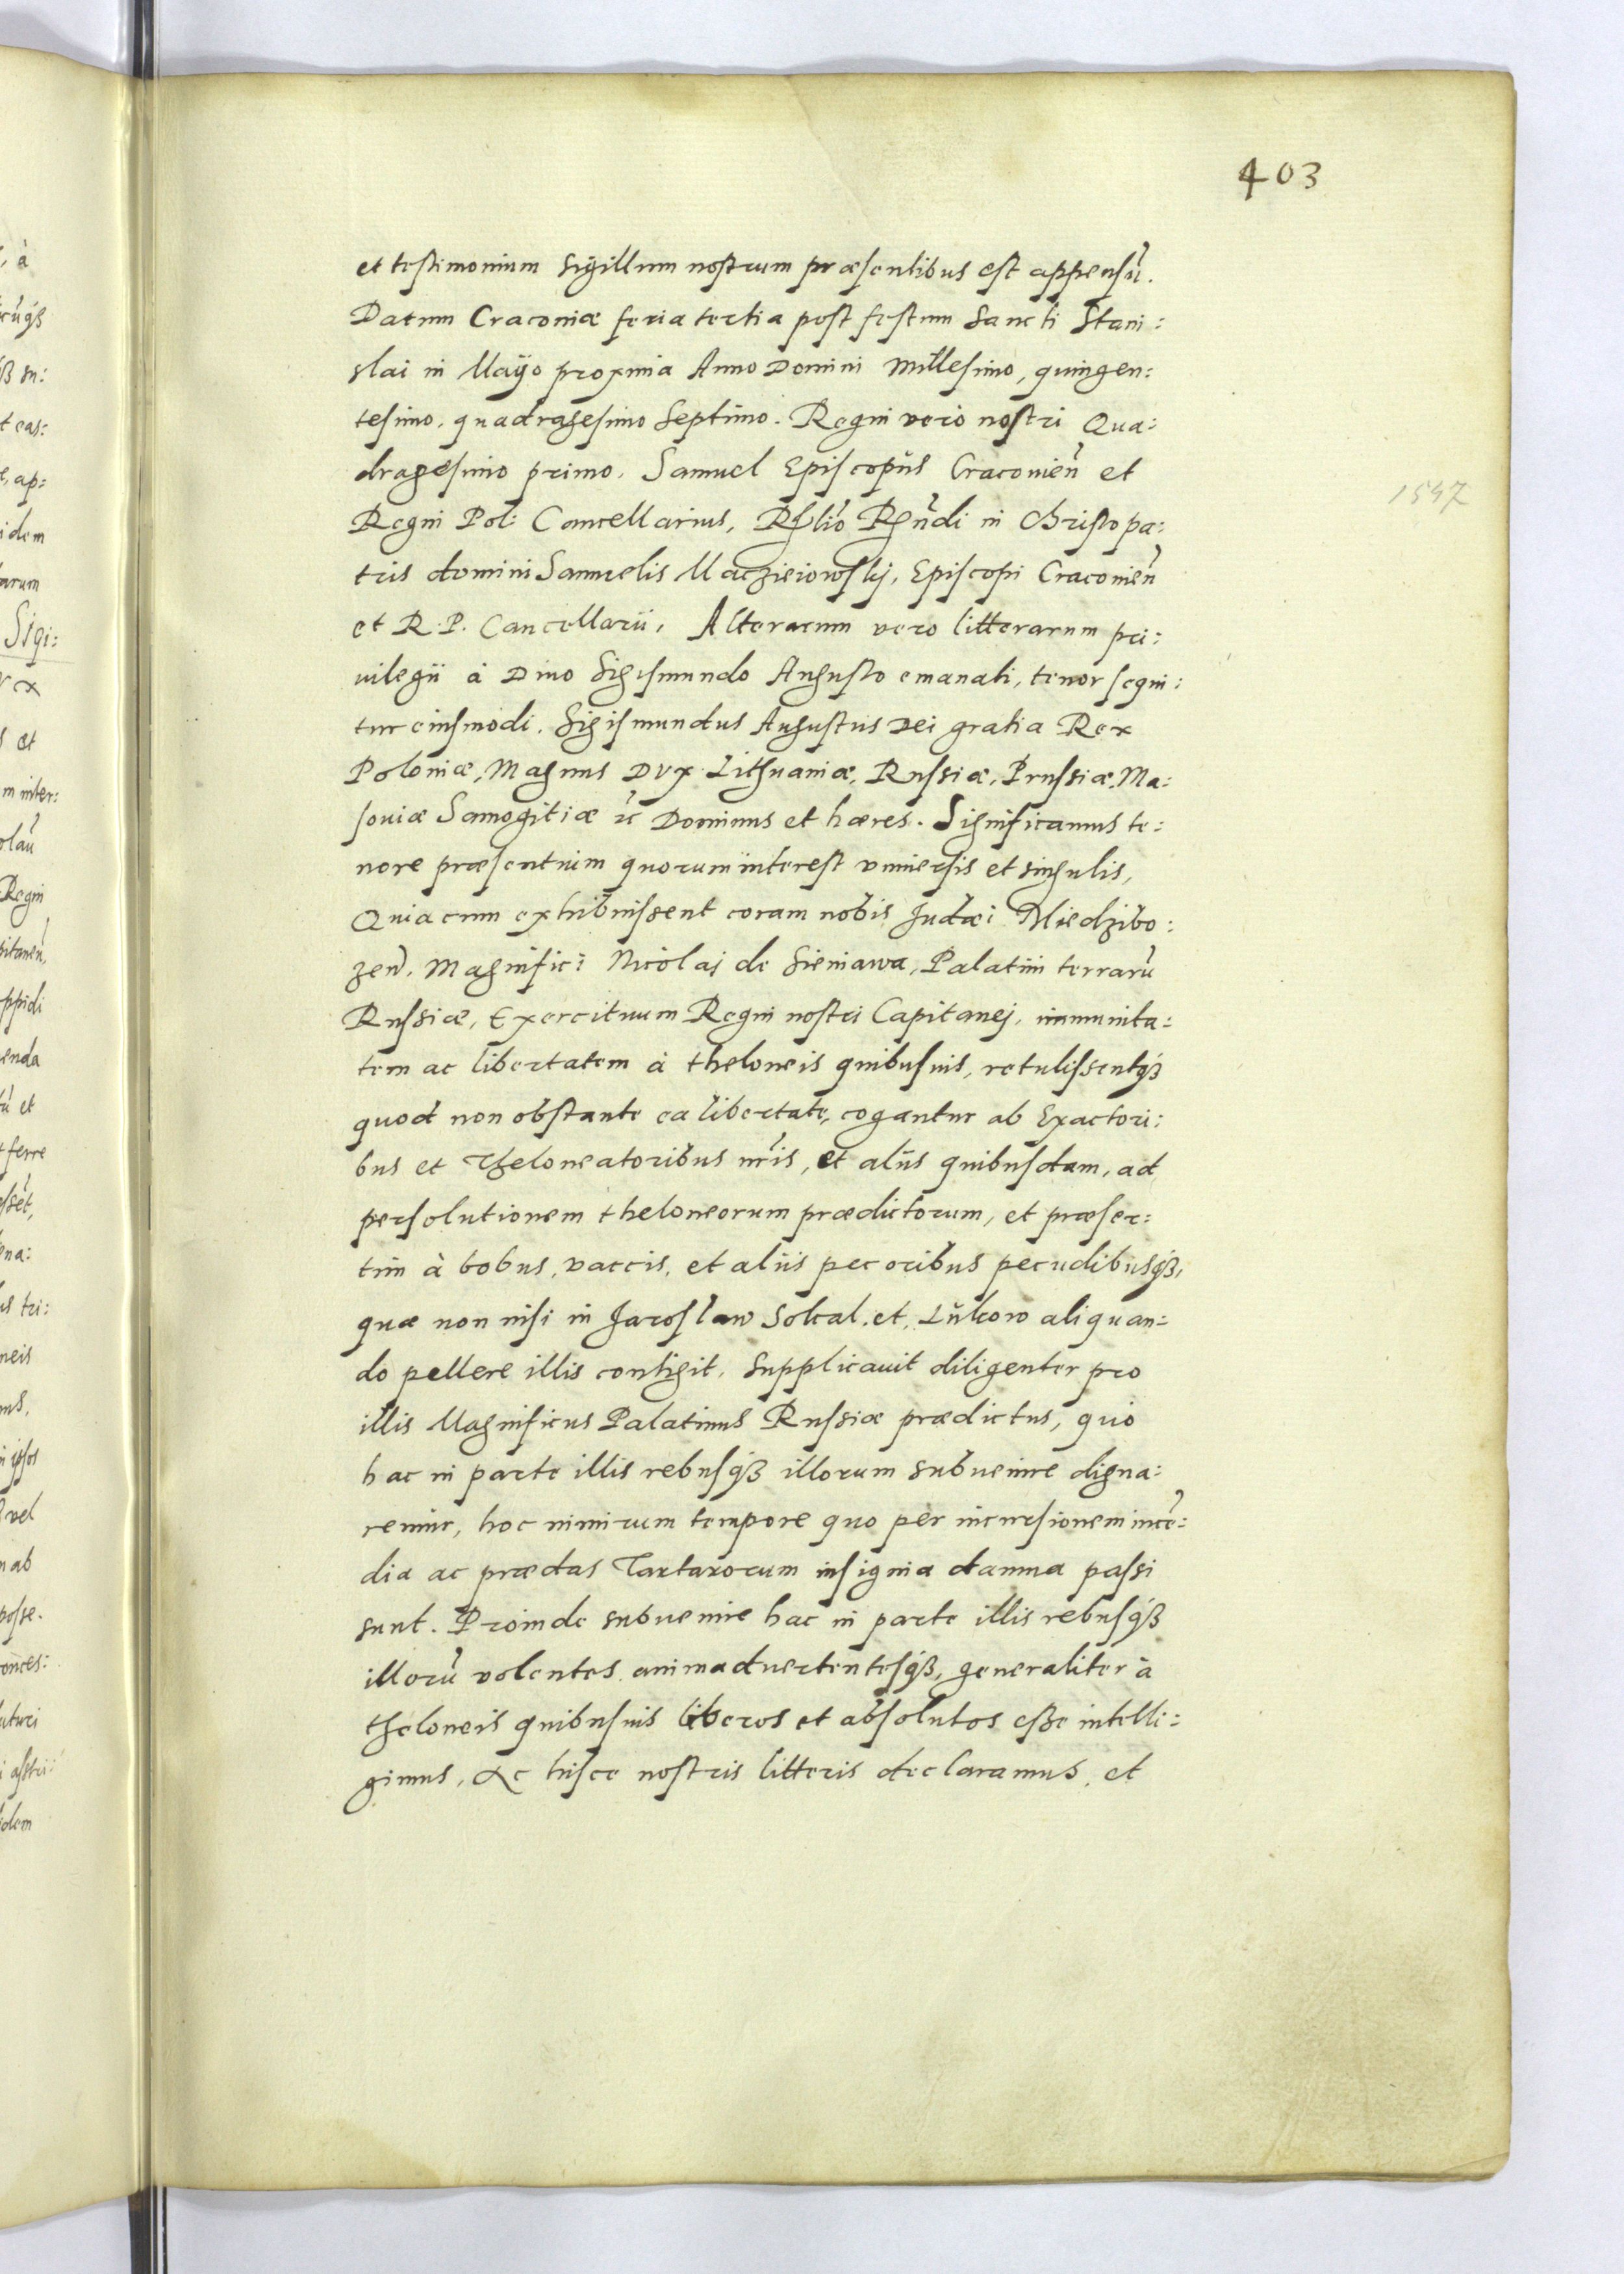 403
et testimonium Sigillum nostrum præsentibus est appensū.
Datum Cracoviæ feria tertia post festum Sancti Stani:
slai in Mayo proxima Anno Domini Millesimo, quingen:
tesimo, quadragesimo Septimo. Regni vero nostri Qua:
dragesimo primo. Samuel Episcopus Cracovien̄ et
1547
Regni Pol: Cancellarius, Rlio Rn̄di in Christo pa:
tris domini Samuelis Maczieiowskj, Episcopi Cracovien̄
et R. P. Cancellarii. Alterarum vero litterarum pri:
uilegii à Diuo Sigismundo Augusto emanati, tenor sequi:
tur eiusmodi. Sigismundus Augustus Dei gratia Rex
Poloniæ, Magnus Dvx Lithuaniæ, Russiæ, Prussiæ, Ma:
souiæ Samogitiæ ꝛc Dominus et hæres. Significamus te:
nore præsentium quorum interest vniuersis et singulis,
Quia cum exhibuissent coram nobis Judæi Miedzibo:
zen̄. Magnifici Nicolaj de Sieniawa, Palatini terrarū
Russiæ, Exercituum Regni nostri Capitanej, immunita:
tem ac libertatem à theloneis quibusuis, retulissentqȝ
quod non obstante ea libertate, cogantur ab Exactori:
bus et Theloneatoribus nr̄is, et aliis quibusdam, ad
persolutionem theloneorum prædictorum, et præser:
tim à bobus, vaccis, et aliis pecoribus pecudibusqȝ,
quæ non nisi in Jaroslaw Sokal, et, Lukow aliquan:
do pellere illis contigit. Supplicauit diligenter pro
illis Magnificus Palatinus Russiæ prædictus, quo
hac in parte illis rebusqȝ illorum subuenire digna:
remur, hoc nimirum tempore quo per incursionem incē:
dia ac prædas Tartarorum insignia damna passi
sunt. Proinde subuenire hac in parte illis rebusqȝ
illorū volentes animaduertentesqȝ, generaliter à
theloneis quibusuis liberos et absolutos esse intelli:
gimus, Ac hisce nostris litteris declaramus, et